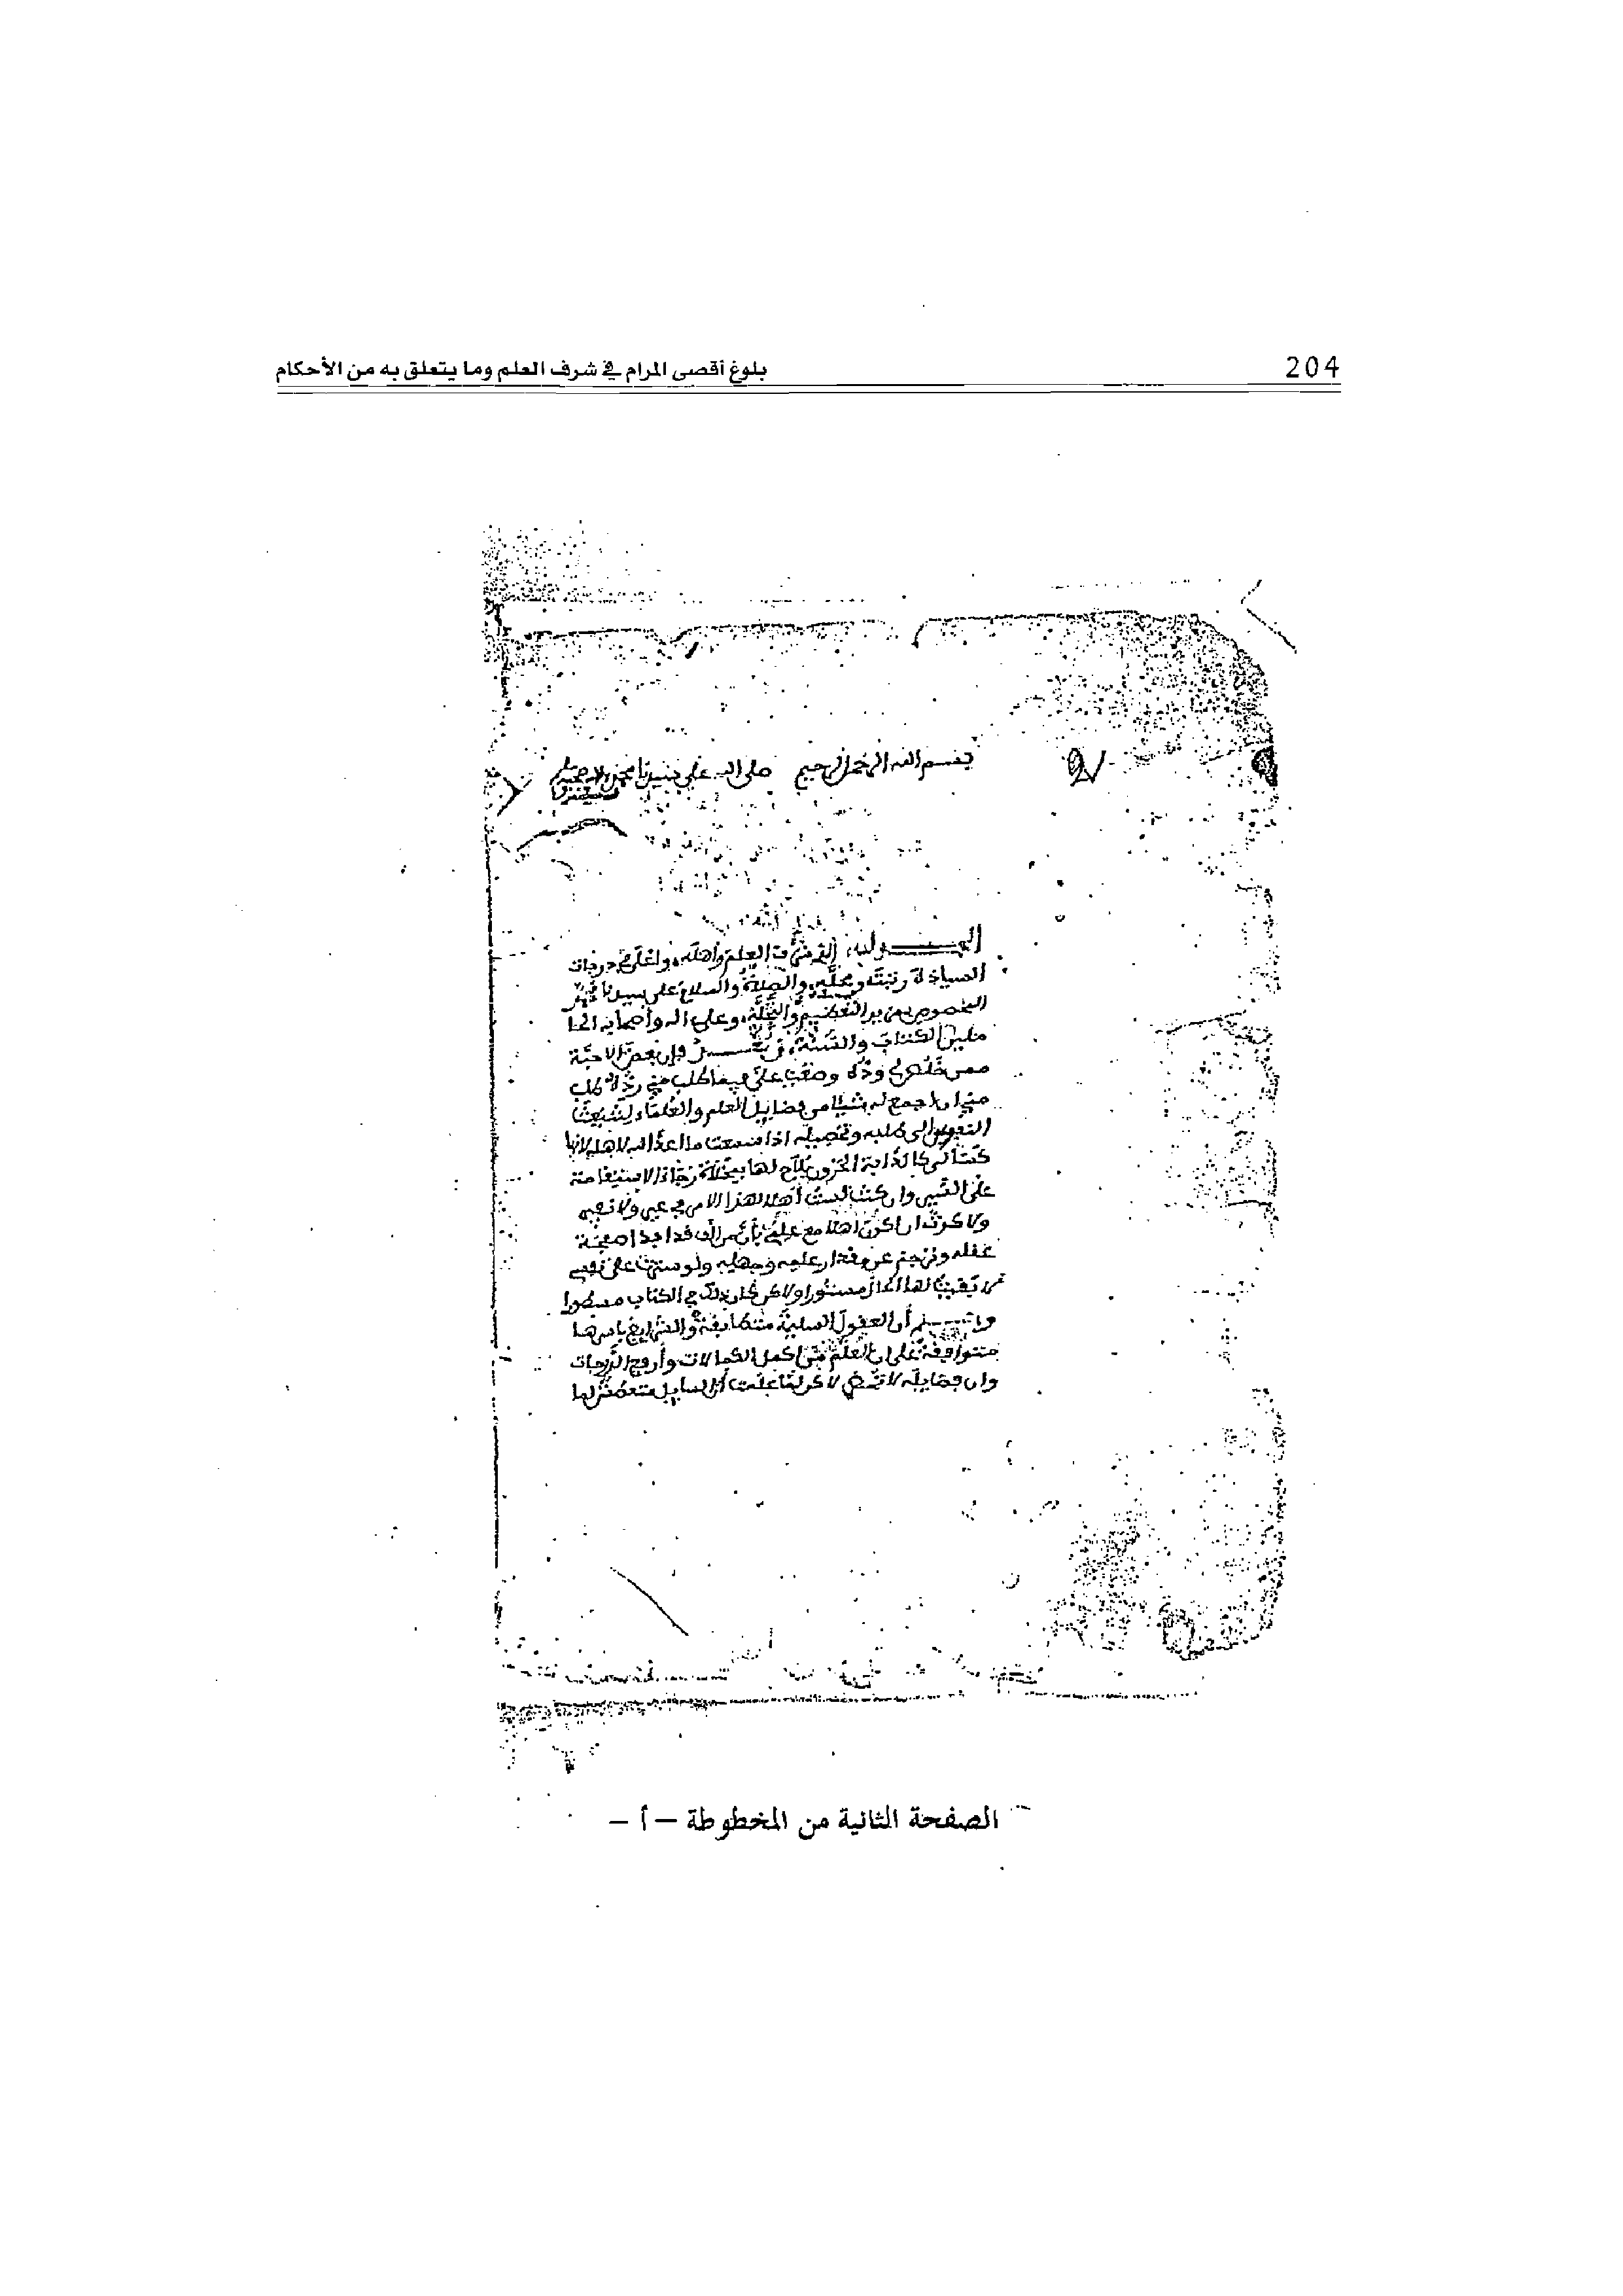 204
بلوغ أقصى المرام في شرف العلم وما يتعلق به من الأحكام
بسم الله الرحمن الرحيم صلى الله على نبينا محمد
الحمد لله الذي شرف العلم وأهله وأعلى في درجات
السيادة رتبته ومحله والصلاة والسلام على سيدنا محمد
المخصوص بمزيد التعظيم والتجلة وعلى اله وأصحابه الحا
ملين الكتاب والسنة فإن بعض الاحبة
ممن خلص لي وده وصعب علي فيما طلب مني رده طلب
مني ان اجمع له شيئا من فضايل العلم والعلماء
النفوس الى طلبه وتحصيله اذا سمعت ما اعد الله لاهله لانها
كالدابة الحزون رجاء الاستقامة
على السير وان كنت لست أهلا لهذا الامر
ولا كرت ان اكون اهلا مع علمي بأن من ألف فدابدا صفحة
عفله وترجم عن مقدار علمه وجهله ولو سترت على نفسي
لكان مستورا ولاكن كان ذلك في الكتاب مسطورا
أن العقول السليمة متطابقة والشرايع باسرها
متوافقة على ان العلم من اكمل الكمالات وأرفع الدرجات
وان فضايله لا تحصى لاكن لما علمت أن السايل متعطش لها
الصفحة الثانية من المخطوطة – أ –